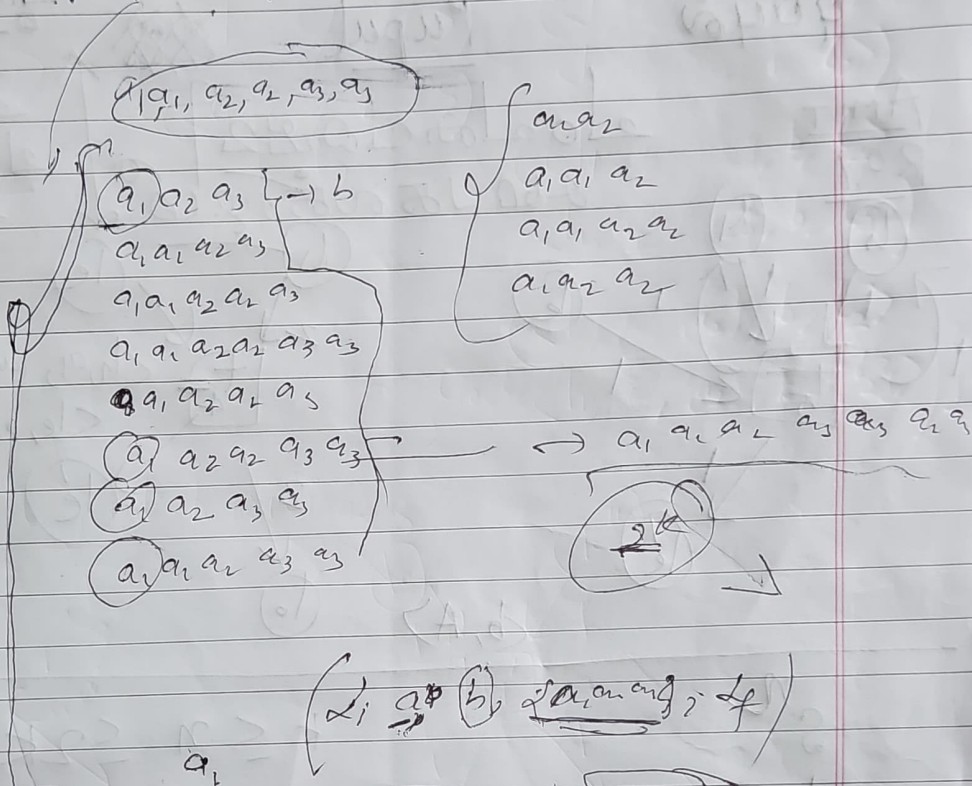 a₁, a₁, a₂, a₂, a₃, a₃
a₁ a₂ a₃ } → b
a₁ a₁ a₂ a₃
a₁ a₁ a₂ a₂ a₃
a₁ a₁ a₂ a₂ a₃ a₃
a₁ a₂ a₂ a₃
a₁ a₂ a₂ a₃ a₃
a₁ a₂ a₃ a₃
a₁ a₁ a₂ a₃ a₃
a₁ a₂
a₁ a₁ a₂
a₁ a₁ a₂ a₂
a₁ a₂ a₂
↔ a₁ a₂ a₂ a₃
2ᵏ
b,
a₁